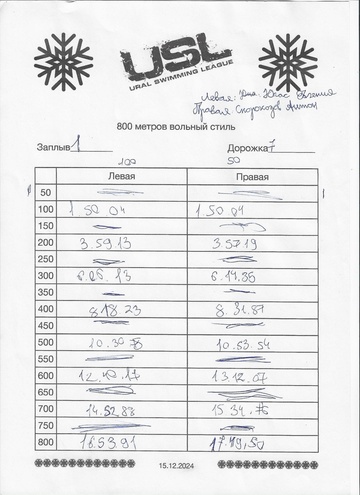 USL
URAL SWIMMING LEAGUE
Левая: Евгения
Правая Антон
800 метров вольный стиль
Заплыв 1 Дорожка 7
100 50
Левая Правая
50
100 1 50 04 1.50.04
150
200 3.59.13 3.57.19
250
300 6.06.13 6.14.35
350
400 8.18.23 8.31.87
450
500 10.30 10.53.54
550
600 12.40.17 13.12.07
650
700 14.52.88 15.34.
750
800 16.53.91 17.49,50
15.12.2024